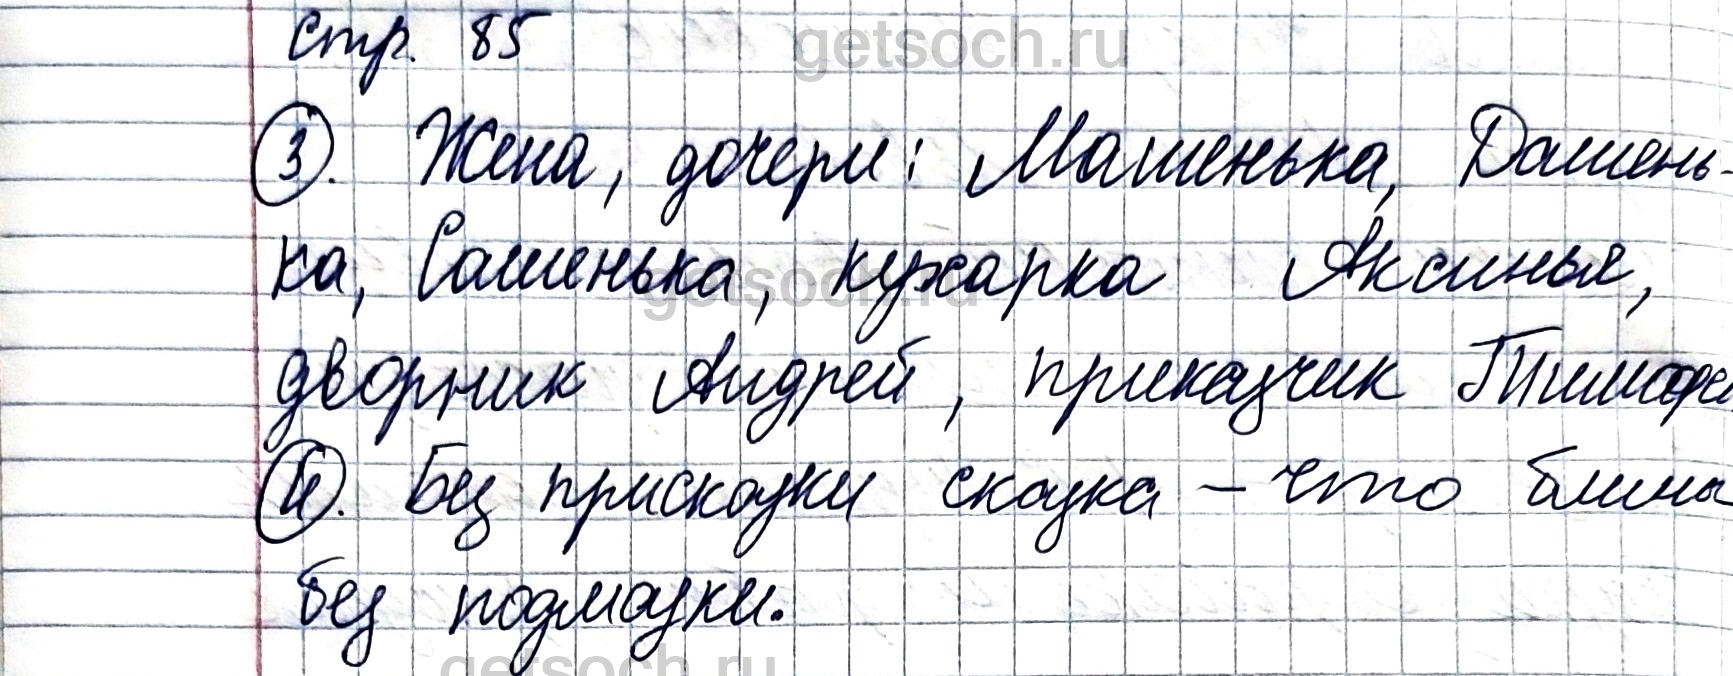 Стр. 85
getsoch.ru
3. Жена, дочери: Машенька, Дашень-
ка, Сашенька, кухарка Аксинья,
getsoch.ru
дворник Андрей, приказчик Тимофе
4. Без присказки сказка – что блины
без подмазки.
getsoch.ru